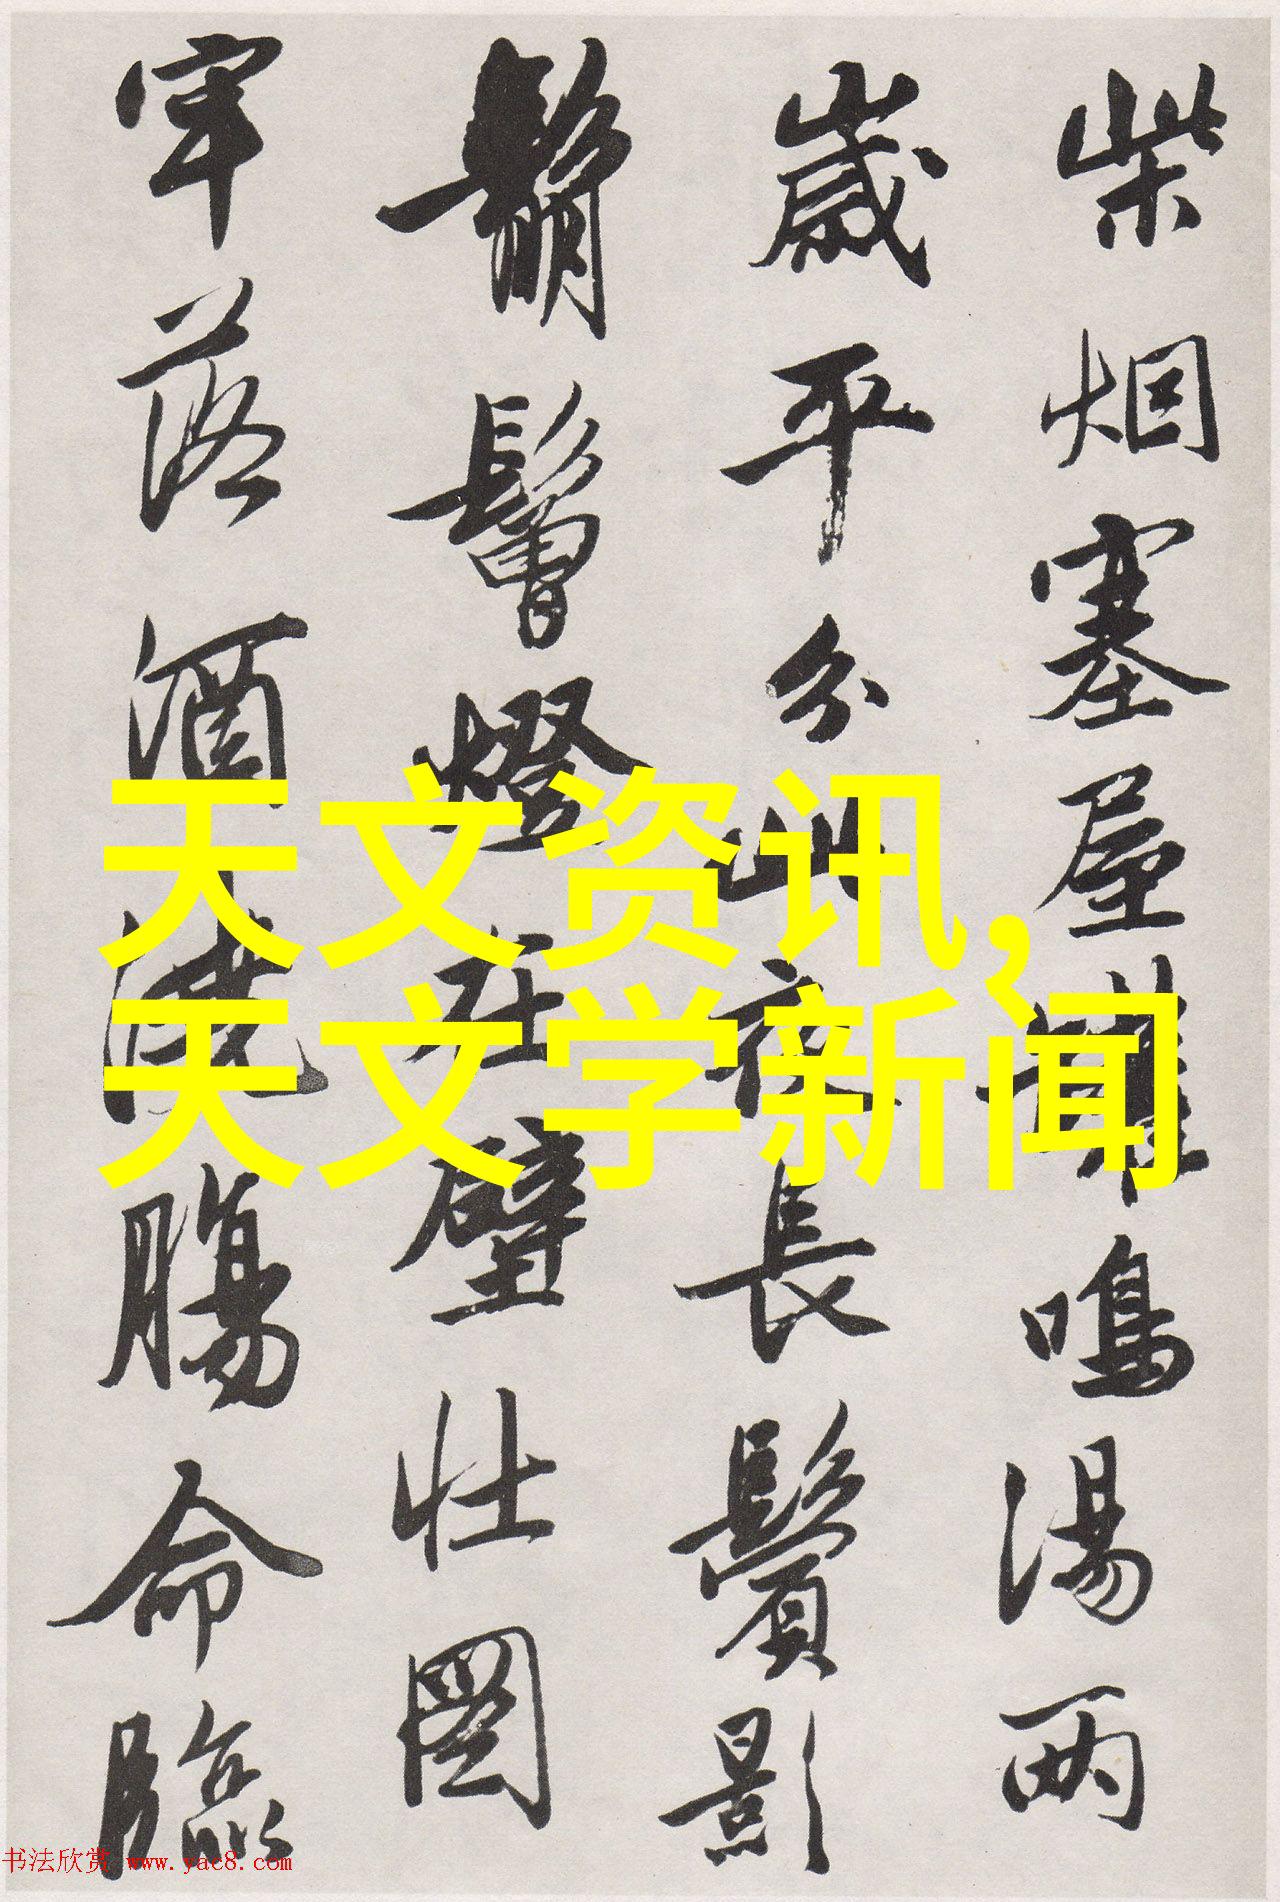 柴烟塞屋罐鳴湯兩
歲平分此夜長鬢影
鬅鬙燈在壁壮圖
牢落酒澆腸命臨
天文资讯,
天文学新闻
书法欣赏 www.yac8.com